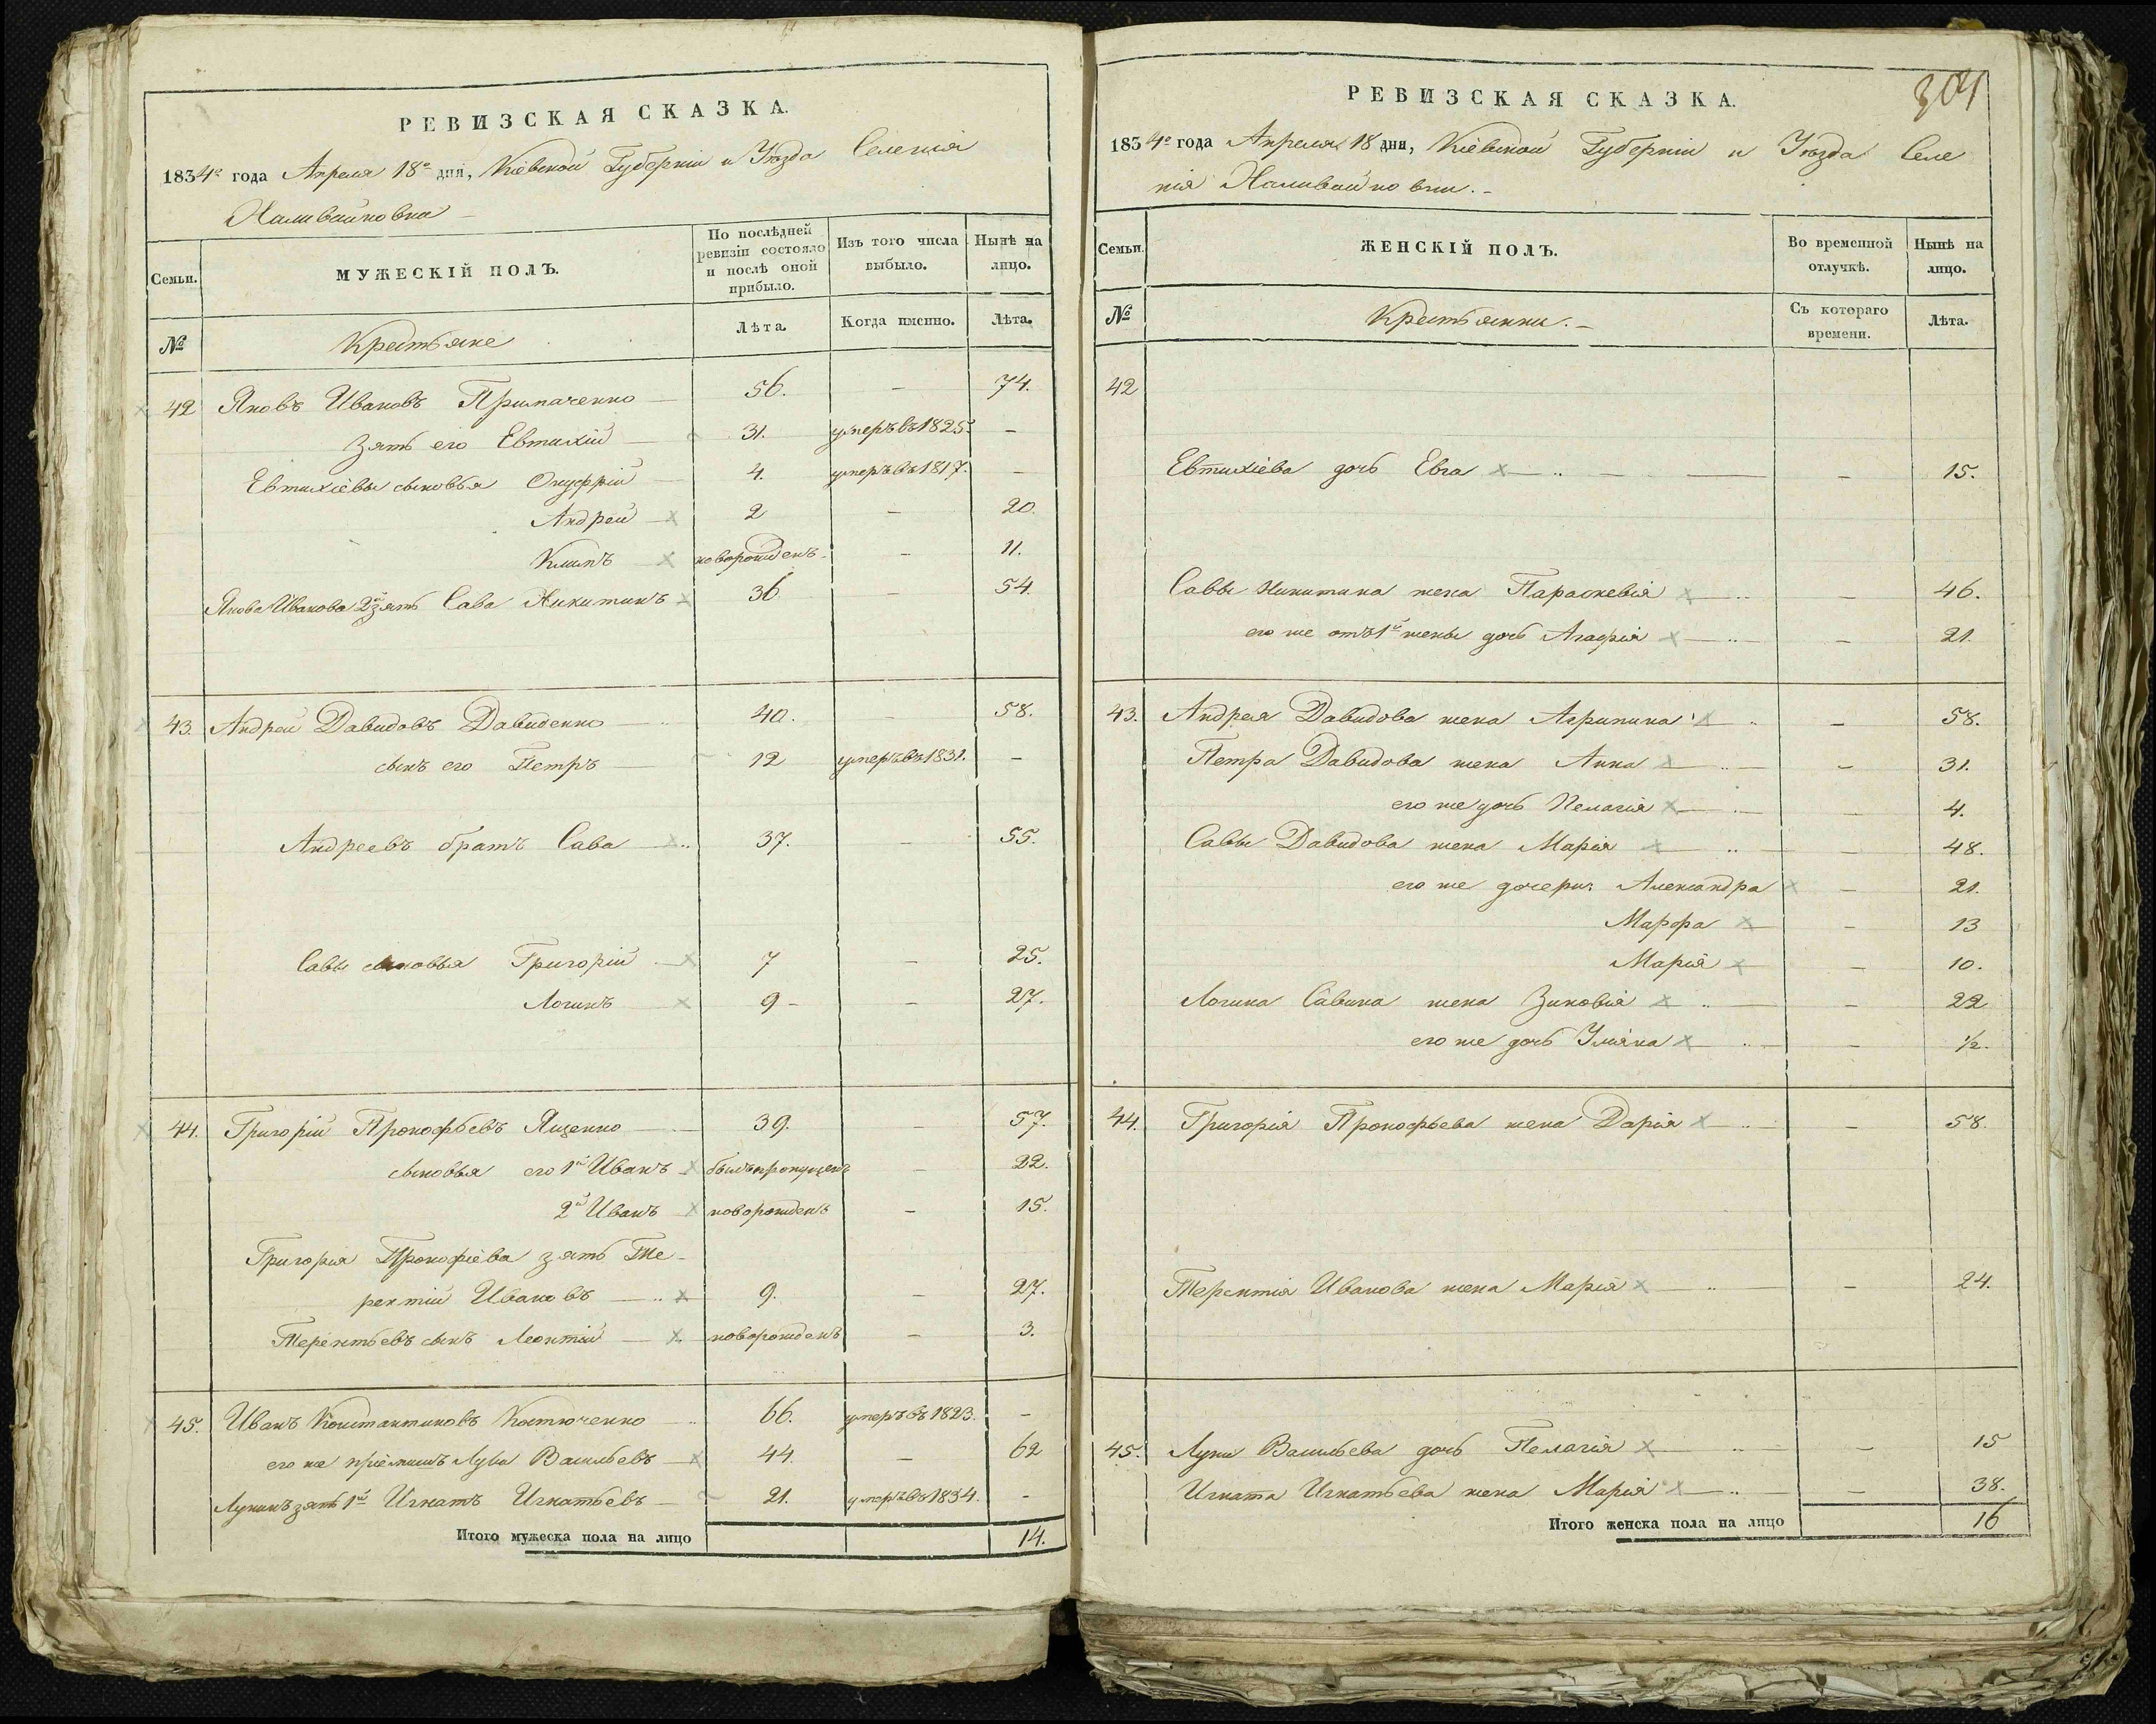 РЕВИЗСКАЯ СКАЗКА.
1834го года Апреля 18го дня, Кіевской Губерніи и Уѣзда Селенія
Наливайковка
Семьи. МУЖЕСКІЙ ПОЛЪ. По послѣдней ревизіи состояло и послѣ оной прибыло. Изъ того числа выбыло. Нынѣ на лицо.
№ Крестьяне Лѣта. Когда именно. Лѣта.
42 Яковъ Ивановъ Примаченко — 56. — 74.
Зять его Евтихій — 31. умеръ въ 1825. —
Евтихіевы сыновья Онуфрій — 4. умеръ въ 1817. —
Андрей — 2 — 20.
Климъ — новорожденъ — 11.
Якова Иванова 2й зять Сава Никитинъ — 36 — 54.
43. Андрей Давидовъ Давиденко — 40. — 58.
сынъ его Петръ — 12 умеръ въ 1831. —
Андреевъ братъ Сава — 37. — 55.
Савы сыновья Григорій — 7 — 25.
Логинъ — 9 — — 27.
44. Григорій Прокофьевъ Ященко — 39. — 57.
сыновья его 1й Иванъ былъ пропущенъ — 22.
2й Иванъ новорожденъ — 15.
Григорія Прокофіева зять Те-
рентій Ивановъ — 9. — 27.
Терентьевъ сынъ Леонтій — новорожденъ — 3.
45. Иванъ Константиновъ Костюченко — 66. умеръ въ 1823. —
его же пріемышъ Лука Васильевъ — 44. — 62
Лукинъ зять 1й Игнатъ Игнатьевъ — 21. умеръ въ 1834. —
Итого мужеска пола на лицо 14.
301
РЕВИЗСКАЯ СКАЗКА.
1834го года Апреля 18 дня, Кіевской Губерніи и Уѣзда Селе
нія Наливайковки. —
Семьи. ЖЕНСКІЙ ПОЛЪ. Во временной отлучкѣ. Нынѣ на лицо.
№ Крестьянки. — Съ котораго времени. Лѣта.
42
Евтихіева дочь Евга — — 15.
Савы Никитина жена Параскевія — — 46.
его же отъ 1й жены дочь Агафія — — 21.
43. Андрея Давидова жена Агрипина — 58.
Петра Давидова жена Анна — — 31.
его же дочь Пелагія — — 4.
Савы Давидова жена Марія — — 48.
его же дочери: Александра — 21.
Марфа — — 13
Марія — — 10.
Логина Савина жена Зиновія — — 22
его же дочь Уліяна — — ½.
44. Григорія Прокофьева жена Дарія — — 58.
Терентія Иванова жена Марія — — 24.
45. Луки Васильева дочь Пелагія — — 15
Игната Игнатьева жена Марія — — 38.
Итого женска пола на лицо 16